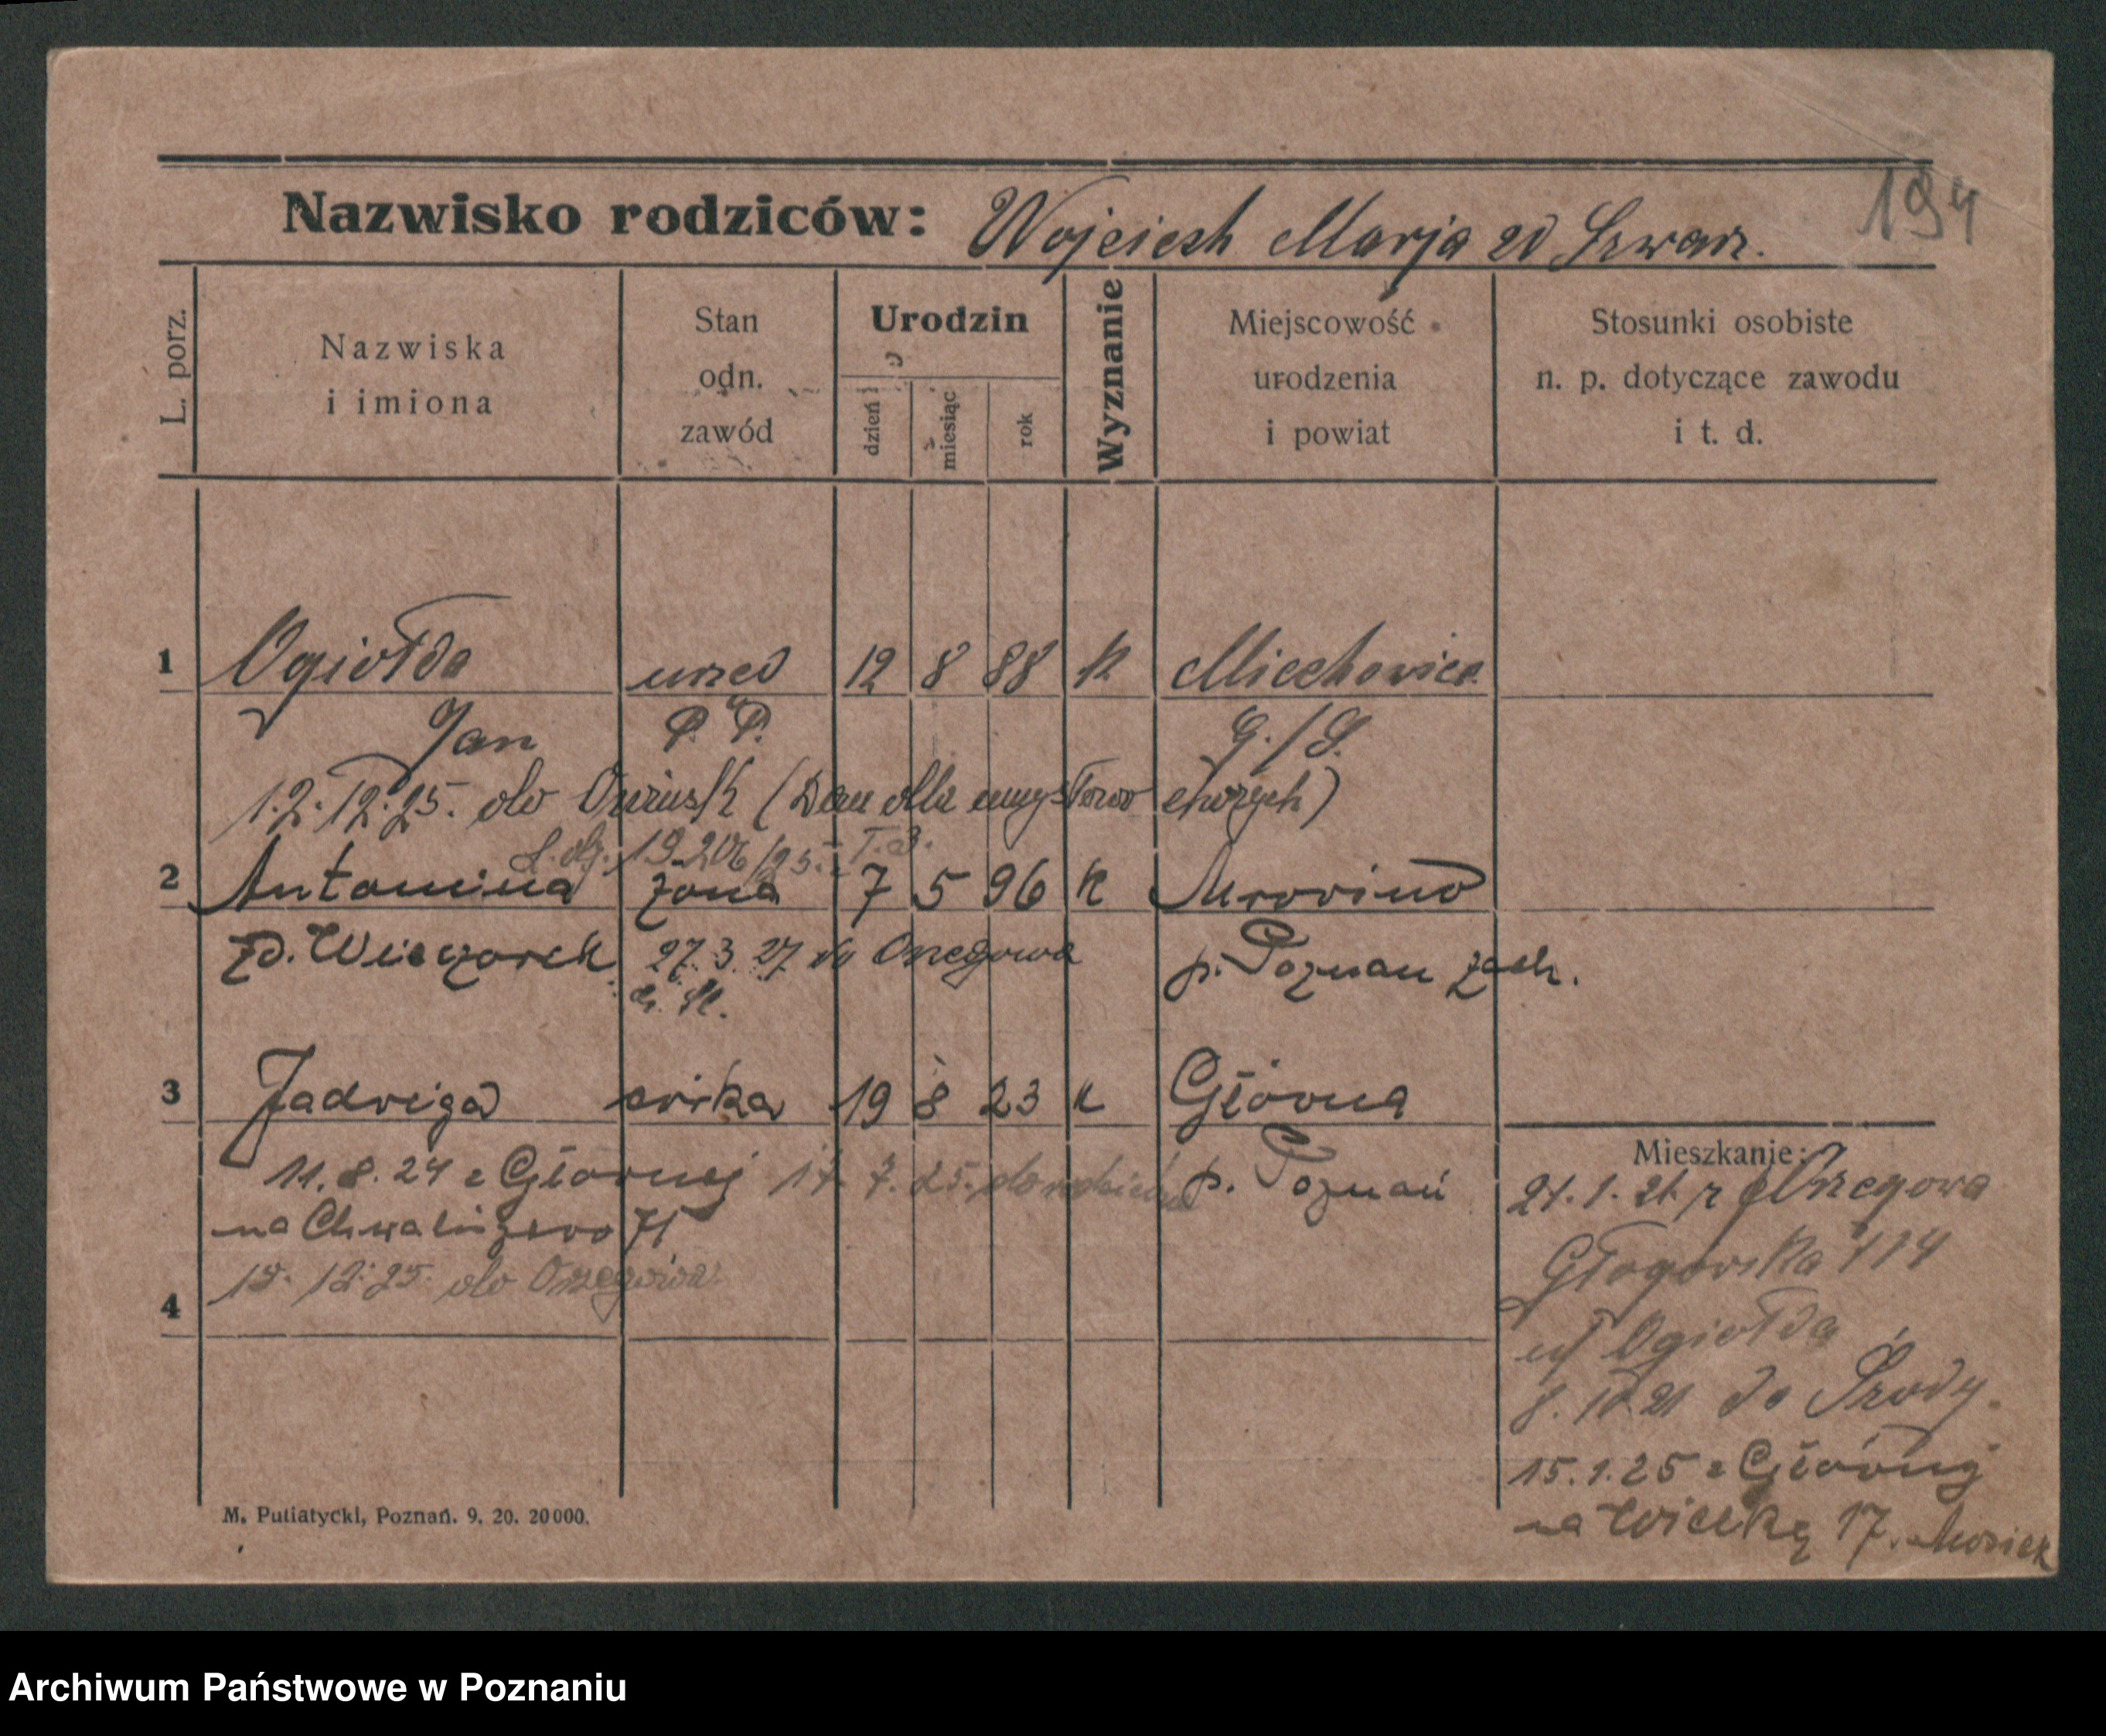 194
Nazwisko rodziców: Wojciech Marja zd Szwarz.
L. porz.
Nazwiska
i imiona
Stan
odn.
zawód
Urodzin
dzień
miesiąc
rok
Wyznanie
Miejscowość
urodzenia
i powiat
Stosunki osobiste
n. p. dotyczące zawodu
i t. d.
1 Ogiołda urzed 12 8 88 k Miechowice
Jan P. P. G./S.
12.12.25. do Owińsk (Dom dla umysłowo chorych)
L. dz. 19206/25. T. 3.
2 Antonina żona 7 5 96 k Mrowino
zd. Wieczorek 27.3.27 do Orzegowa p. Poznań zach.
G. Śl.
3 Jadwiga córka 19 8 23 k Główna
11.8.24 z Głównej 17. 7. 25. do p. Poznań
na Chwaliszewo 71
15. 12. 25. do Orzegowa
4
Mieszkanie:
21.1.21. z Orzegowa
Głogowska 114
u/ Ogiołda
8. 10 21 do Środy.
15.1.25 z Głównej
na Wielką 17.
M. Putiatycki, Poznań. 9. 20. 20000.
Archiwum Państwowe w Poznaniu